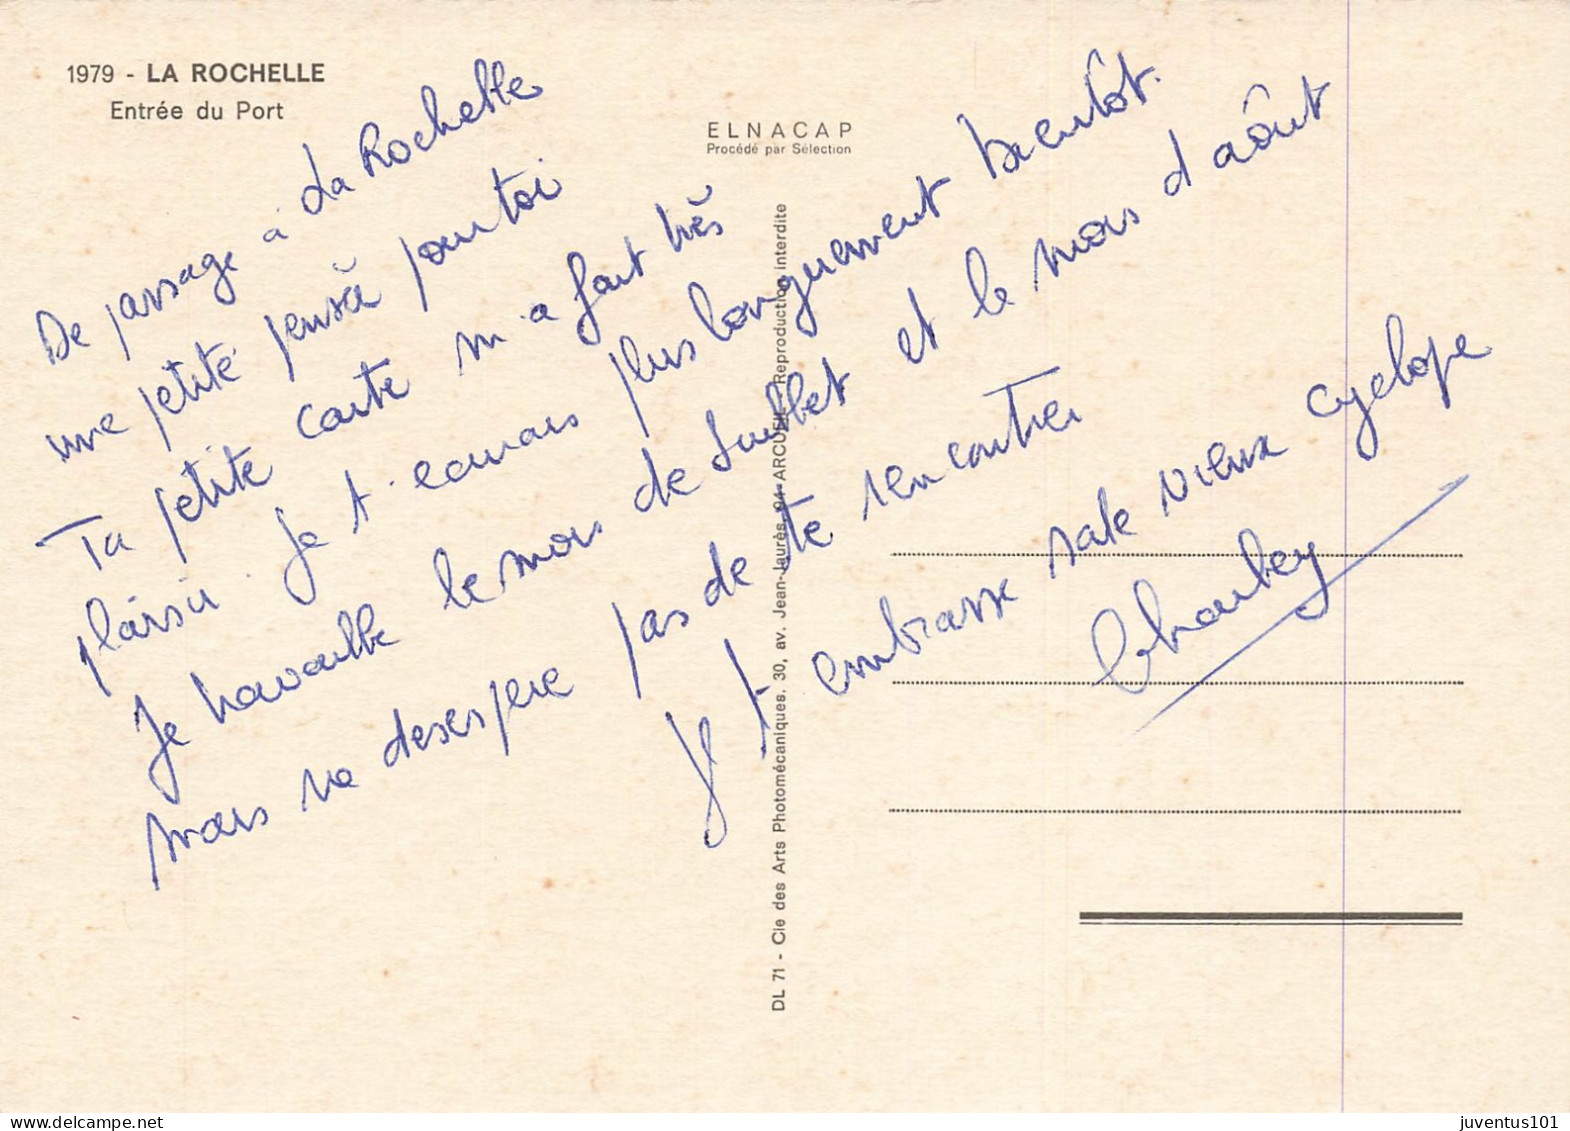 1979 - LA ROCHELLE
Entrée du Port
ELNACAP
Procédé par Sélection
De passage à La Rochelle
une petite pensée pour toi
Ta petite carte m'a fait très
plaisir. Je t'écrirais plus longuement bientôt.
Je travaille le mois de Juillet et le mois d'aôut
mais ne desespere pas de te rencontrer
Je t'embrasse sale vieux cyclope
DL 71 - Cie des Arts Photomécaniques, 30, av. Jean-Jaurès, 94-ARCUEIL Reproduction interdite
juventus101